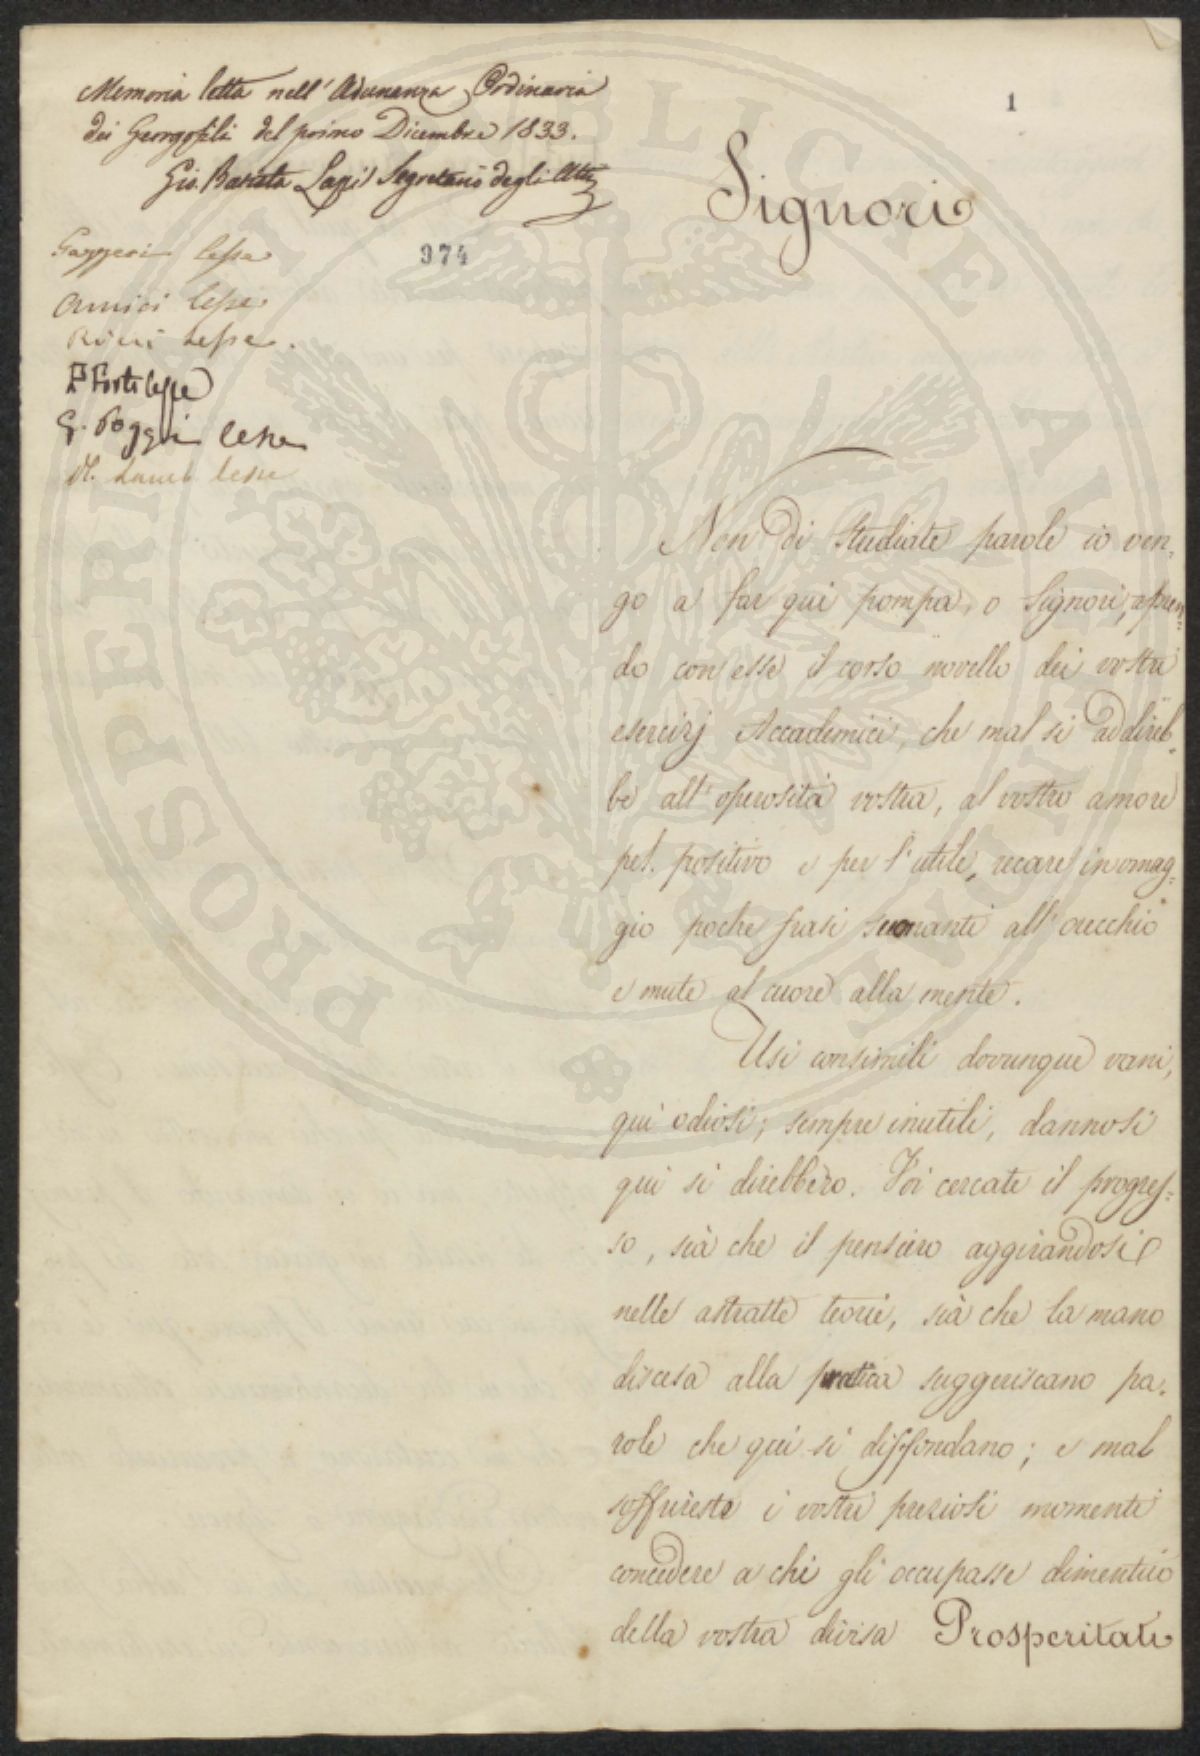 Memoria letta nell'Adunanza Ordinaria
dei Georgofili del primo Dicembre 1833.
Gio. Batista Lapi Segretario degli Atti
1
Signori
974
Gazzeri lesse
Amici lesse
Ricci lesse.
F Forti lesse
G. Poggi lesse
lesse
Non di studiate parole io ven-
go a far qui pompa, o Signori, apren-
do con esse il corso novello dei vostri
esercizj Accademici, che mal si addireb-
be all'operosità vostra, al vostro amore
pel positivo e per l'utile, recare in omag-
gio poche frasi suonanti all'orecchio
e mute al cuore alla mente.
Usi consimili dovunque vani,
qui odiosi; sempre inutili, dannosi
qui si direbbero. Voi cercate il progres-
so, sià che il pensiero aggirandosi
nelle astratte teorie, sià che la mano
discesa alla pratica suggeriscano pa-
role che qui si diffondano; e mal
soffrireste i vostri preziosi momenti
concedere a chi gli occupasse dimentico
della vostra divisa Prosperitati
PROSPERITATI PUBLICAE AUGENDAE